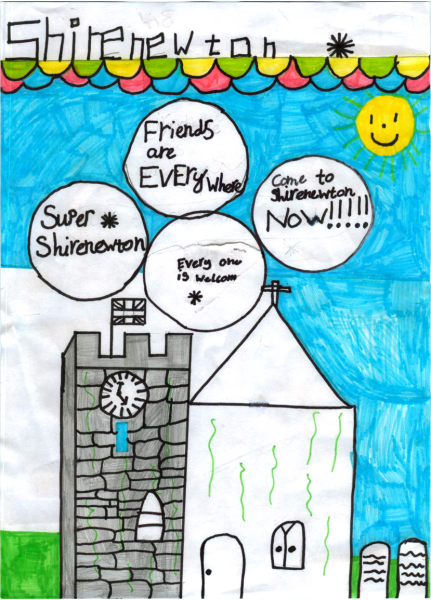 Shirenewton *
Friends
are
EVEryWhere
Come to
Shirenewton
NOW!!!!!
Super *
Shirenewton
Every one
is welcome
*